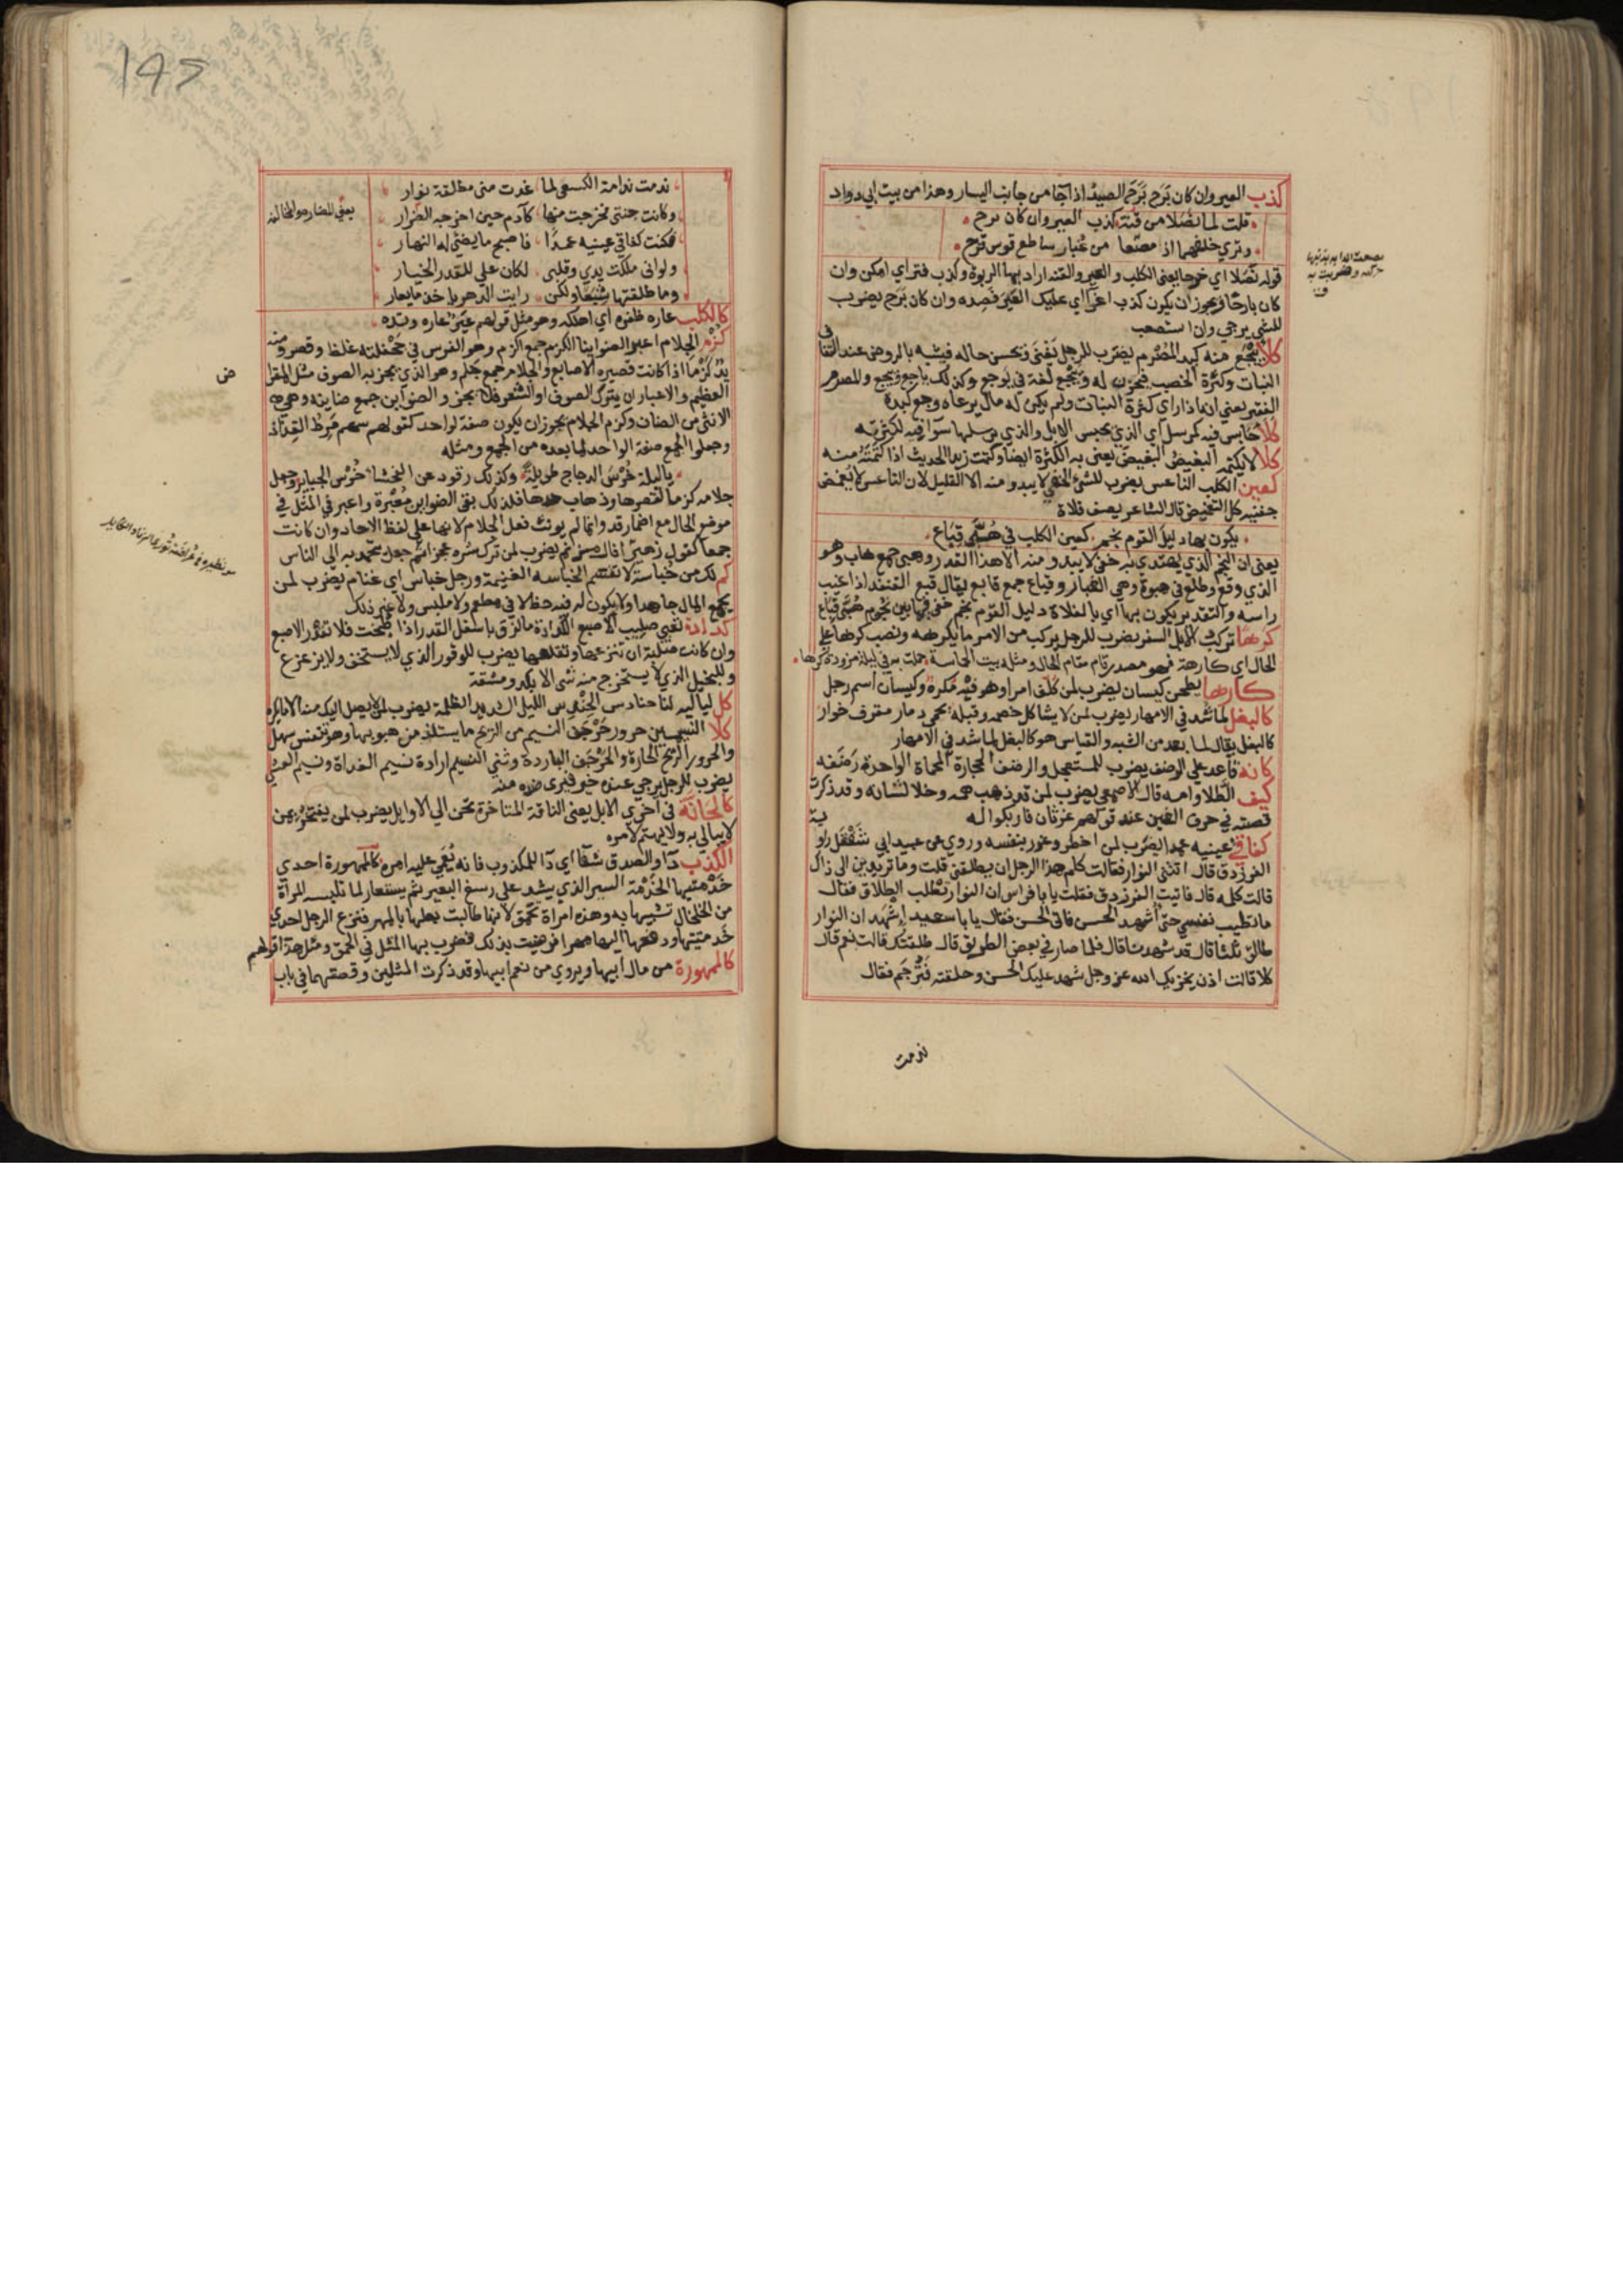 كذب العير وان كان برح برح الصيد اذا جا من جانب اليسار وهذا من بيت ابي دواد
قلت لما نصلا من قنة كذب العير وان كان برح
وتري خلفهما اذ مصعا من غبار ساطع قوس قزح
قوله نصلا اي خرجا يعني الكلب والعير والقنة اراد بها الربوة وكذب فتر اي امكن وان
كان بارحا ويجوز ان يكون كذب اغرا اي عليك العير فصده وان كان برح يضرب
للشي يرجي وان استصعب
كلا ييجع منه كبد المصرم يضرب للرجل يغني وتحسن حاله فيشبه بالروض عند التفاف
النبات وكثرة الخصب فيحزن له وييجع لغة في يوجع وكذلك ياجع وييجع والمصرم
الفقير يعني انه اذا راي كثرة النبات ولم يكن له مال يرعاه وجع كبده
كلا حابس فيه كمرسل اي الذي يحبس الابل والذي يرسلها سوا فيه لكثرته
كلا لا يكتمه البغيض البغيض يعني به الكثرة ايضا وكتمت زيدا الحديث اذا كتمته منه
كعين الكلب الناعس يضرب للشي الخفي لا يبدو منه الا القليل لان الناعس لا يغمض
جفنيه كل التغميض قال الشاعر يصف فلاة
يكون بها دليل القوم نجم كعين الكلب في هبي قباع
يعني ان النجم الذي يهتدي به خفي لا يبدو منه الا هذا القدر وهبي جمع هاب وهو
الذي وقع وطلع في هبوة وهي الغبار وقباع جمع قابع يقال قبع القنفذ اذا غيب
راسه والتقدير يكون بها اي بالفلاة دليل القوم نجم خفي فيها بين نجوم هبي قباع
كرها تركب الابل السفر يضرب للرجل يركب من الامر ما يكرهه ونصب كرها علي
الحال اي كارهة فهو مصدر قام مقام الحال ومثله بيت الحماسة حملت به في ليلة مزودة كرها
كارها يطحن كيسان يضرب لمن كلف امرا وهو فيه مكره وكيسان اسم رجل
كالبغل لما شد في الامهار يضرب لمن لا يشاكل خصمه وقبله يحمي ذمار مقرف خوار
كالبغل يقال لما بعد من الشبه والقياس هو كالبغل لما شد في الامهار
كانه قاعد علي الرضف يضرب للمستعجل والرضف الحجارة المحماة الواحدة رضفه
كيف الطلا وامه قال الاصمعي يضرب لمن قد ذهب همه وخلا لشانه وقد ذكرت
قصته في حرف الغين عند قولهم غرثان فاربكوا له
كفاقئ عينيه عمدا يضرب لمن اخطر وغرر بنفسه وروي عن عبيد ابي شفقل راوية
الفرزدق قال اتتني النوار فقالت كلم هذا الرجل ان يطلقني قلت وما تريدين الى ذاك
قالت كلمه قال فاتيت الفرزدق فقلت يا ابا فراس ان النوار تطلب الطلاق فقال
ما تطيب نفسي حتي اشهد الحسن فاتي الحسن فقال يا با سعيد اشهد ان النوار
طالق ثلثا قال قد شهدت قال فلما صار في بعض الطريق قال طلقتك قالت نعم قال
كلا قالت اذن يخزيك الله عز وجل شهد عليك الحسن وحلقته فترجم فقال
ندمت
ندمت ندامة الكسعي لما غدت مني مطلقة نوار
وكانت جنتي فخرجت منها كآدم حين اخرجه الضرار
يعني الضرار هو المخالفة
فكنت كفاقي عينيه عمدا فاصبح ما يضئ له النهار
ولو اني ملكت يدي وقلبي لكان علي للقدر الخيار
وما طلقتها شبعا ولكن رايت الدهر ياخذ ما يعار
كالكلب عاره ظفره اي اهلكه وهو مثل قولهم عير عاره وتده
كزم الجلام اعبر الضواينا الكزم جمع اكزم وهو الفرس في جحفلته غلظ وقصر ومنه
يد كزما اذا كانت قصيرة الاصابع والجلام جمع جلم وهو الذي يجز به الصوف مثل المقراض
العظيم والاعبار ان يترك الصوف او الشعر فلا يجز والضواين جمع ضاينة وهي
الانثي من الضان وكزم الجلام يجوز ان يكون صفة لواحد كقولهم سهم مرط القذاذ
وجعلوا الجمع صفة الواحد لما بعده من الجمع ومثله
يا ليلة خرس الدجاج طويلة وكذلك رقود عن الفحشا خرس الجباير وجعل
جلامه كزما لقصرها وذهاب حدها فلذلك بقي الضواين معبرة واعبر في المثل في
موضع الحال مع اضمار قد وانما لم يونث فعل الجلام لانها علي لفظ الاحاد وان كانت
جمعا كقول زهير افال مزنم يضرب لمن ترك شره عجزا ثم جعل يتحمد به الي الناس
كم لك من خباسة لا تقتسم الخباسه الغنيمة ورجل خباس اي غنام يضرب لمن
يجمع المال جاهدا ولا يكون له فيه حظ لا في مطعم ولا ملبس ولا غير ذلك
كدادة تعيي صليب الاصبع الكدادة ما لزق باسفل القدر اذا طبخت فلا تقدر الاصبع
وان كانت صلبة ان تنزعها وتقلعها يضرب للوقور الذي لا يستخف ولا يزعزع
وللبخيل الذي لا يستخرج منه شي الا بكد ومشقة
كل لياليه لنا حنادس الحندس الليل الشديد الظلمة يضرب لمن لا يصل اليك منه الا ما تكره
كلا النسيمين حرور حرجف النسيم من الريح ما يستلذ من هبوبها وهو تنفس سهل
والحرور الريح الحارة والحرجف الباردة وثني النسيم ارادة نسيم الغداة ونسيم العشي
يضرب للرجل يرجي عنده خير فيري ضده منه
كالحانة في اخري الابل يعني الناقة المتاخرة تحن الي الاوايل يضرب لمن يفتخر بمن
لا يبالي به ولا يهتم لامره
الكذب دآ والصدق شفآ اي دآ للمكذوب فانه يعمي عليه امره كالممهورة احدي
خدمتيها الخدمة السير الذي يشد علي رسغ البعير ثم يستعار لما تلبسه المرآة
من الخلخال تشبيها به وهذه امراة تحمق لانها طالبت بعلها بالمهر فنزع الرجل احدي
خدمتيها ودفعها اليها مهرا فرضيت بذلك فضرب بها المثل في الحمق ومثل هذا قولهم
كالممهورة من مال ابيها ويروي من نعم ابيها وقد ذكرت المثلين وقصتهما في باب